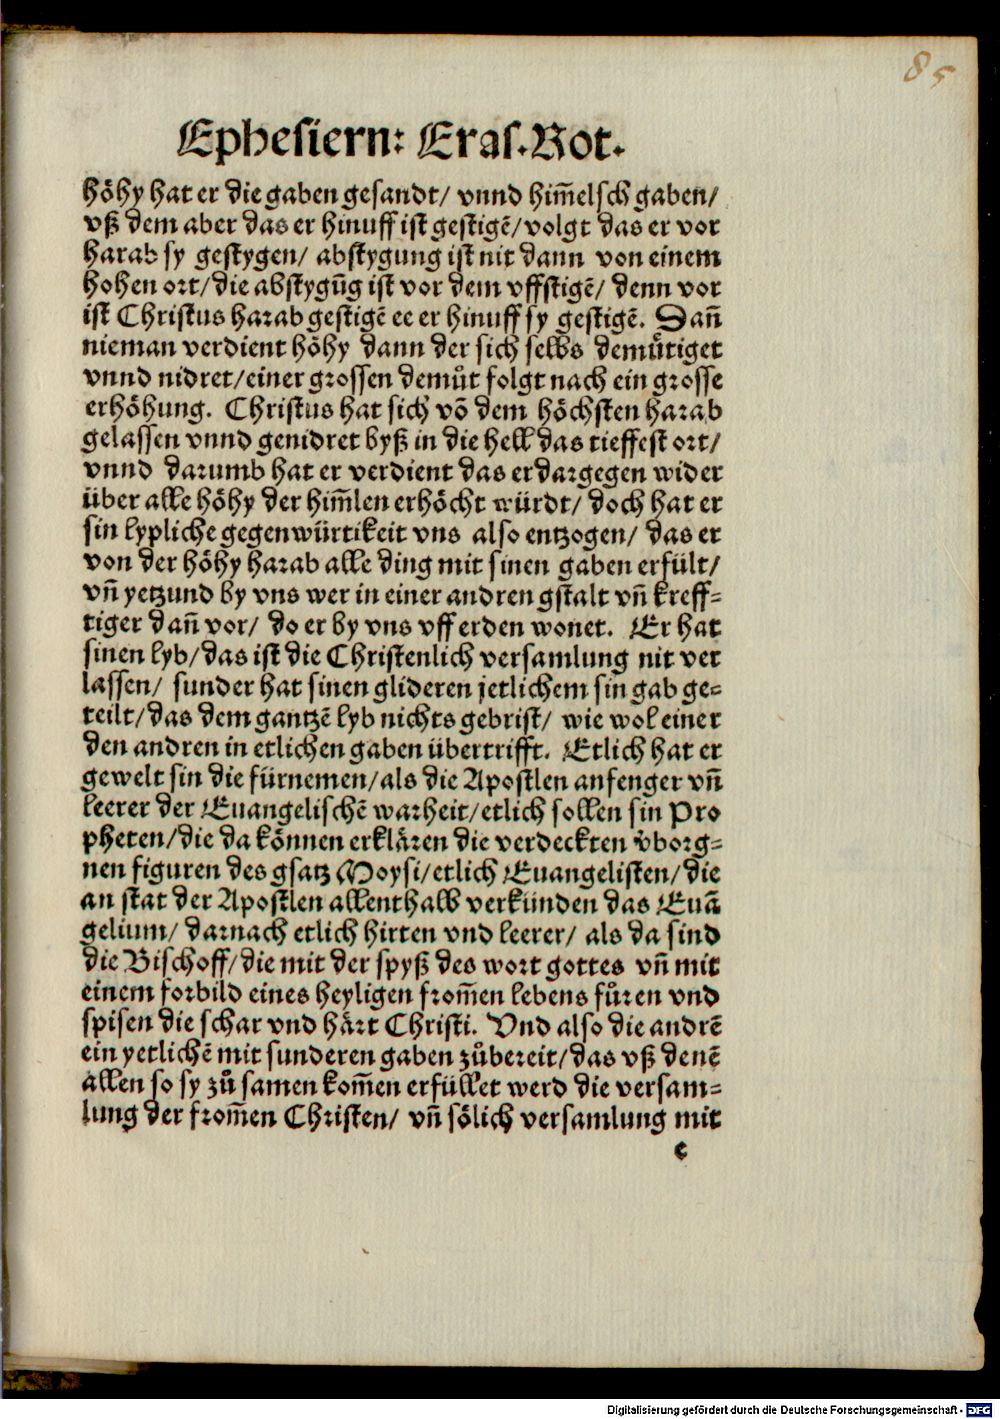 85
Ephesiern: Eras. Rot.
höhy hat er die gaben gesandt/ vnnd him̄elsch gaben/
vß dem aber das er hinuff ist gestigē/ volgt das er vor
harab sy gestygen/ abstygung ist nit dann von einem
hohen ort/ die abstygūg ist vor dem vffstigē/ denn vor
ist Christus harab gestigē ee er hinuff sy gestigē. Dan̄
nieman verdient höhy dann der sich selbs demuͤtiget
vnnd nidret/ einer grossen demuͦt folgt nach ein grosse
erhöhung. Christus hat sich vō dem höchsten harab
gelassen vnnd genidret byß in die hell das tieffest ort/
vnnd darumb hat er verdient das er dargegen wider
über alle höhy der him̄len erhöcht würdt/ doch hat er
sin lypliche gegenwürtikeit vns also entzogen/ das er
von der höhy harab alle ding mit sinen gaben erfült/
vn̄ yetzund by vns wer in einer andren gstalt vn̄ kreff-
tiger dan̄ vor/ do er by vns vff erden wonet. Er hat
sinen lyb/ das ist die Christenlich versamlung nit ver
lassen/ sunder hat sinen glideren jetlichem sin gab ge-
teilt/ das dem gantzē lyb nichts gebrist/ wie wol einer
den andren in etlichen gaben übertrifft. Etlich hat er
gewelt sin die fürnemen/ als die Apostlen anfenger vn̄
leerer der Euangelischē warheit/ etlich sollen sin Pro
pheten/ die da können erklären die verdeckten v̓borg-
nen figuren des gsatz Moysi/ etlich Euangelisten/ die
an stat der Apostlen allenthalb verkünden das Euā
gelium/ darnach etlich hirten vnd leerer/ als da sind
die Bischoff/ die mit der spyß des wort gottes vn̄ mit
einem forbild eines heyligen from̄en lebens fuͤren vnd
spisen die schar vnd härt Christi. Vnd also die andrē
ein yetlichē mit sunderen gaben zuͦbereit/ das vß denē
allen so sy zuͦ samen kom̄en erfüllet werd die versam-
lung der from̄en Christen/ vn̄ sölich versamlung mit
c
Digitalisierung gefördert durch die Deutsche Forschungsgemeinschaft - DFG